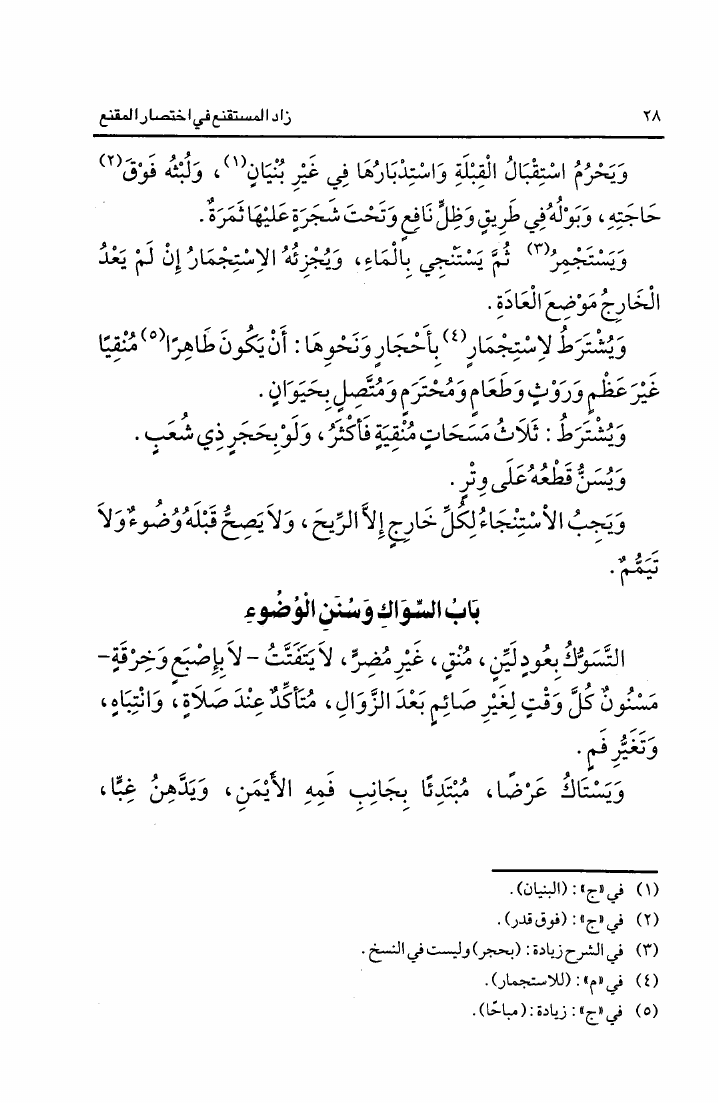 ٢٨ زاد المستقنع في اختصار المقنع
وَيَحْرُمُ اسْتِقْبَالُ الْقِبْلَةِ وَاسْتِدْبَارُهَا فِي غَيْرِ بُنْيَانٍ(١)، وَلُبْثُه فَوْقَ(٢)
حَاجَتِهِ، وَبَوْلُهُ فِي طَرِيقٍ وَظِلٍّ نَافِعٍ وَتَحْتَ شَجَرَةٍ عَلَيْهَا ثَمَرَةٌ.
وَيَسْتَجْمِرُ(٣) ثُمَّ يَسْتَنْجِي بِالْمَاءِ، وَيُجْزِئُهُ الاِسْتِجْمَارُ إِنْ لَمْ يَعْدُ
الْخَارِجُ مَوْضِعَ الْعَادَةِ.
وَيُشْتَرَطُ لاِسْتِجْمَارٍ(٤) بِأَحْجَارٍ وَنَحْوِهَا: أَنْ يَكُونَ طَاهِرًا(٥) مُنْقِيًا
غَيْرَ عَظْمٍ وَرَوْثٍ وَطَعَامٍ وَمُحْتَرَمٍ وَمُتَّصِلٍ بِحَيَوَانٍ.
وَيُشْتَرَطُ: ثَلَاثُ مَسَحَاتٍ مُنْقِيَةٍ فَأَكْثَرُ، وَلَوْ بِحَجَرٍ ذِي شُعَبٍ.
وَيُسَنُّ قَطْعُهُ عَلَى وِتْرٍ.
وَيَجِبُ الاْسْتِنْجَاءُ لِكُلِّ خَارِجٍ إِلاَّ الرِّيحَ، وَلاَ يَصِحُّ قَبْلَهُ وُضُوءٌ وَلاَ
تَيَمُّمٌ.
بَابُ السِّوَاكِ وَسُنَنِ الْوُضُوءِ
التَّسَوُّكُ بِعُودٍ لَيِّنٍ، مُنْقٍ، غَيْرِ مُضِرٍّ، لاَ يَتَفَتَّتُ - لاَ بِإِصْبَعٍ وَخِرْقَةٍ -
مَسْنُونٌ كُلَّ وَقْتٍ لِغَيْرِ صَائِمٍ بَعْدَ الزَّوَالِ، مُتَأَكِّدٌ عِنْدَ صَلَاةٍ، وَانْتِبَاهٍ،
وَتَغَيُّرِ فَمٍ.
وَيَسْتَاكُ عَرْضًا، مُبْتَدِئًا بِجَانِبِ فَمِهِ الأَيْمَنِ، وَيَدَّهِنُ غِبًّا،
(١) في «ج»: (البنيان).
(٢) في «ج»: (فوق قدر).
(٣) في الشرح زيادة: (بحجر) وليست في النسخ.
(٤) في «م»: (للاستجمار).
(٥) في «ج»: زيادة: (مباحًا).